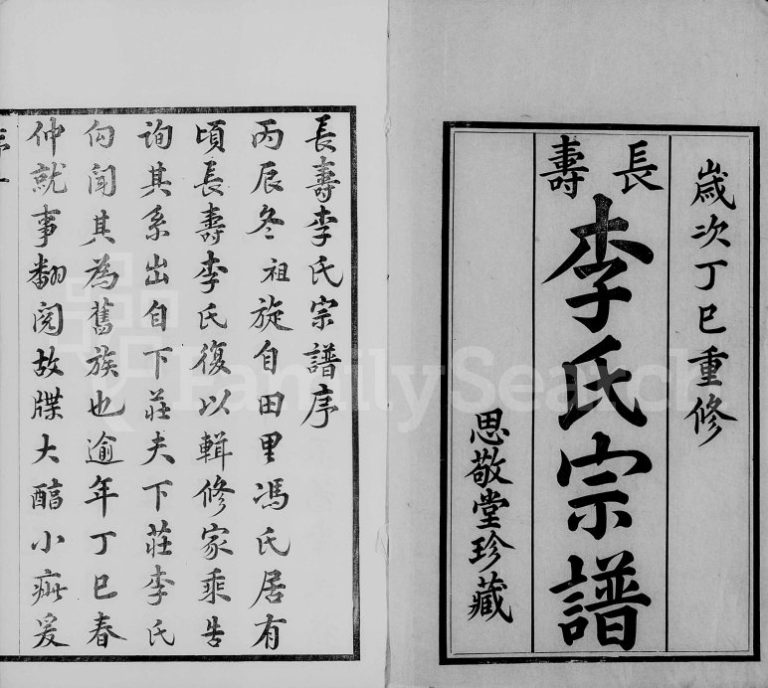 歲次丁巳重修
長壽
李氏宗譜
思敬堂珍藏
長壽李氏宗譜序
丙辰冬祖旋自田里馮氏居有
頃長壽李氏復以輯修家乘告
詢其系出自下莊夫下莊李氏
向聞其為舊族也逾年丁巳春
仲就事翻閱故牒大醇小疵爰
FamilySearch